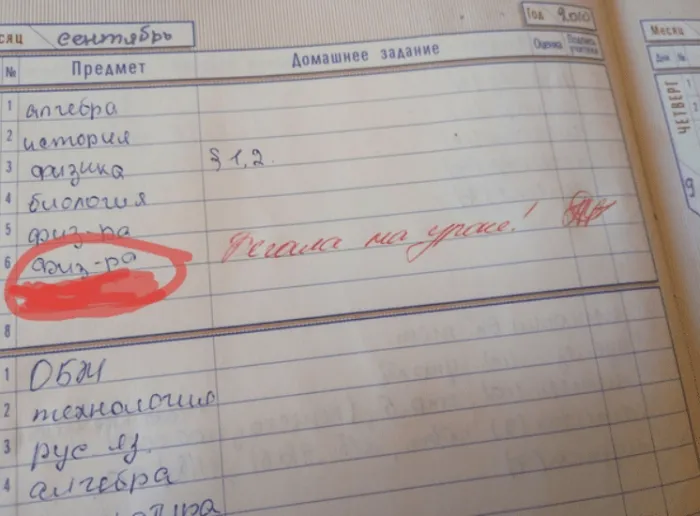 сяц сентябрь
Год 2010
№ Предмет Домашнее задание Оценка Подпись учителя
1 алгебра
2 история
3 физика § 1, 2.
4 биология
5 физ-ра
6 физ-ра Бегала на уроке!
8
1 ОБЖ
2 технология
3 рус яз.
4 алгебра
Месяц
№
ЧЕТВЕРГ
1
2